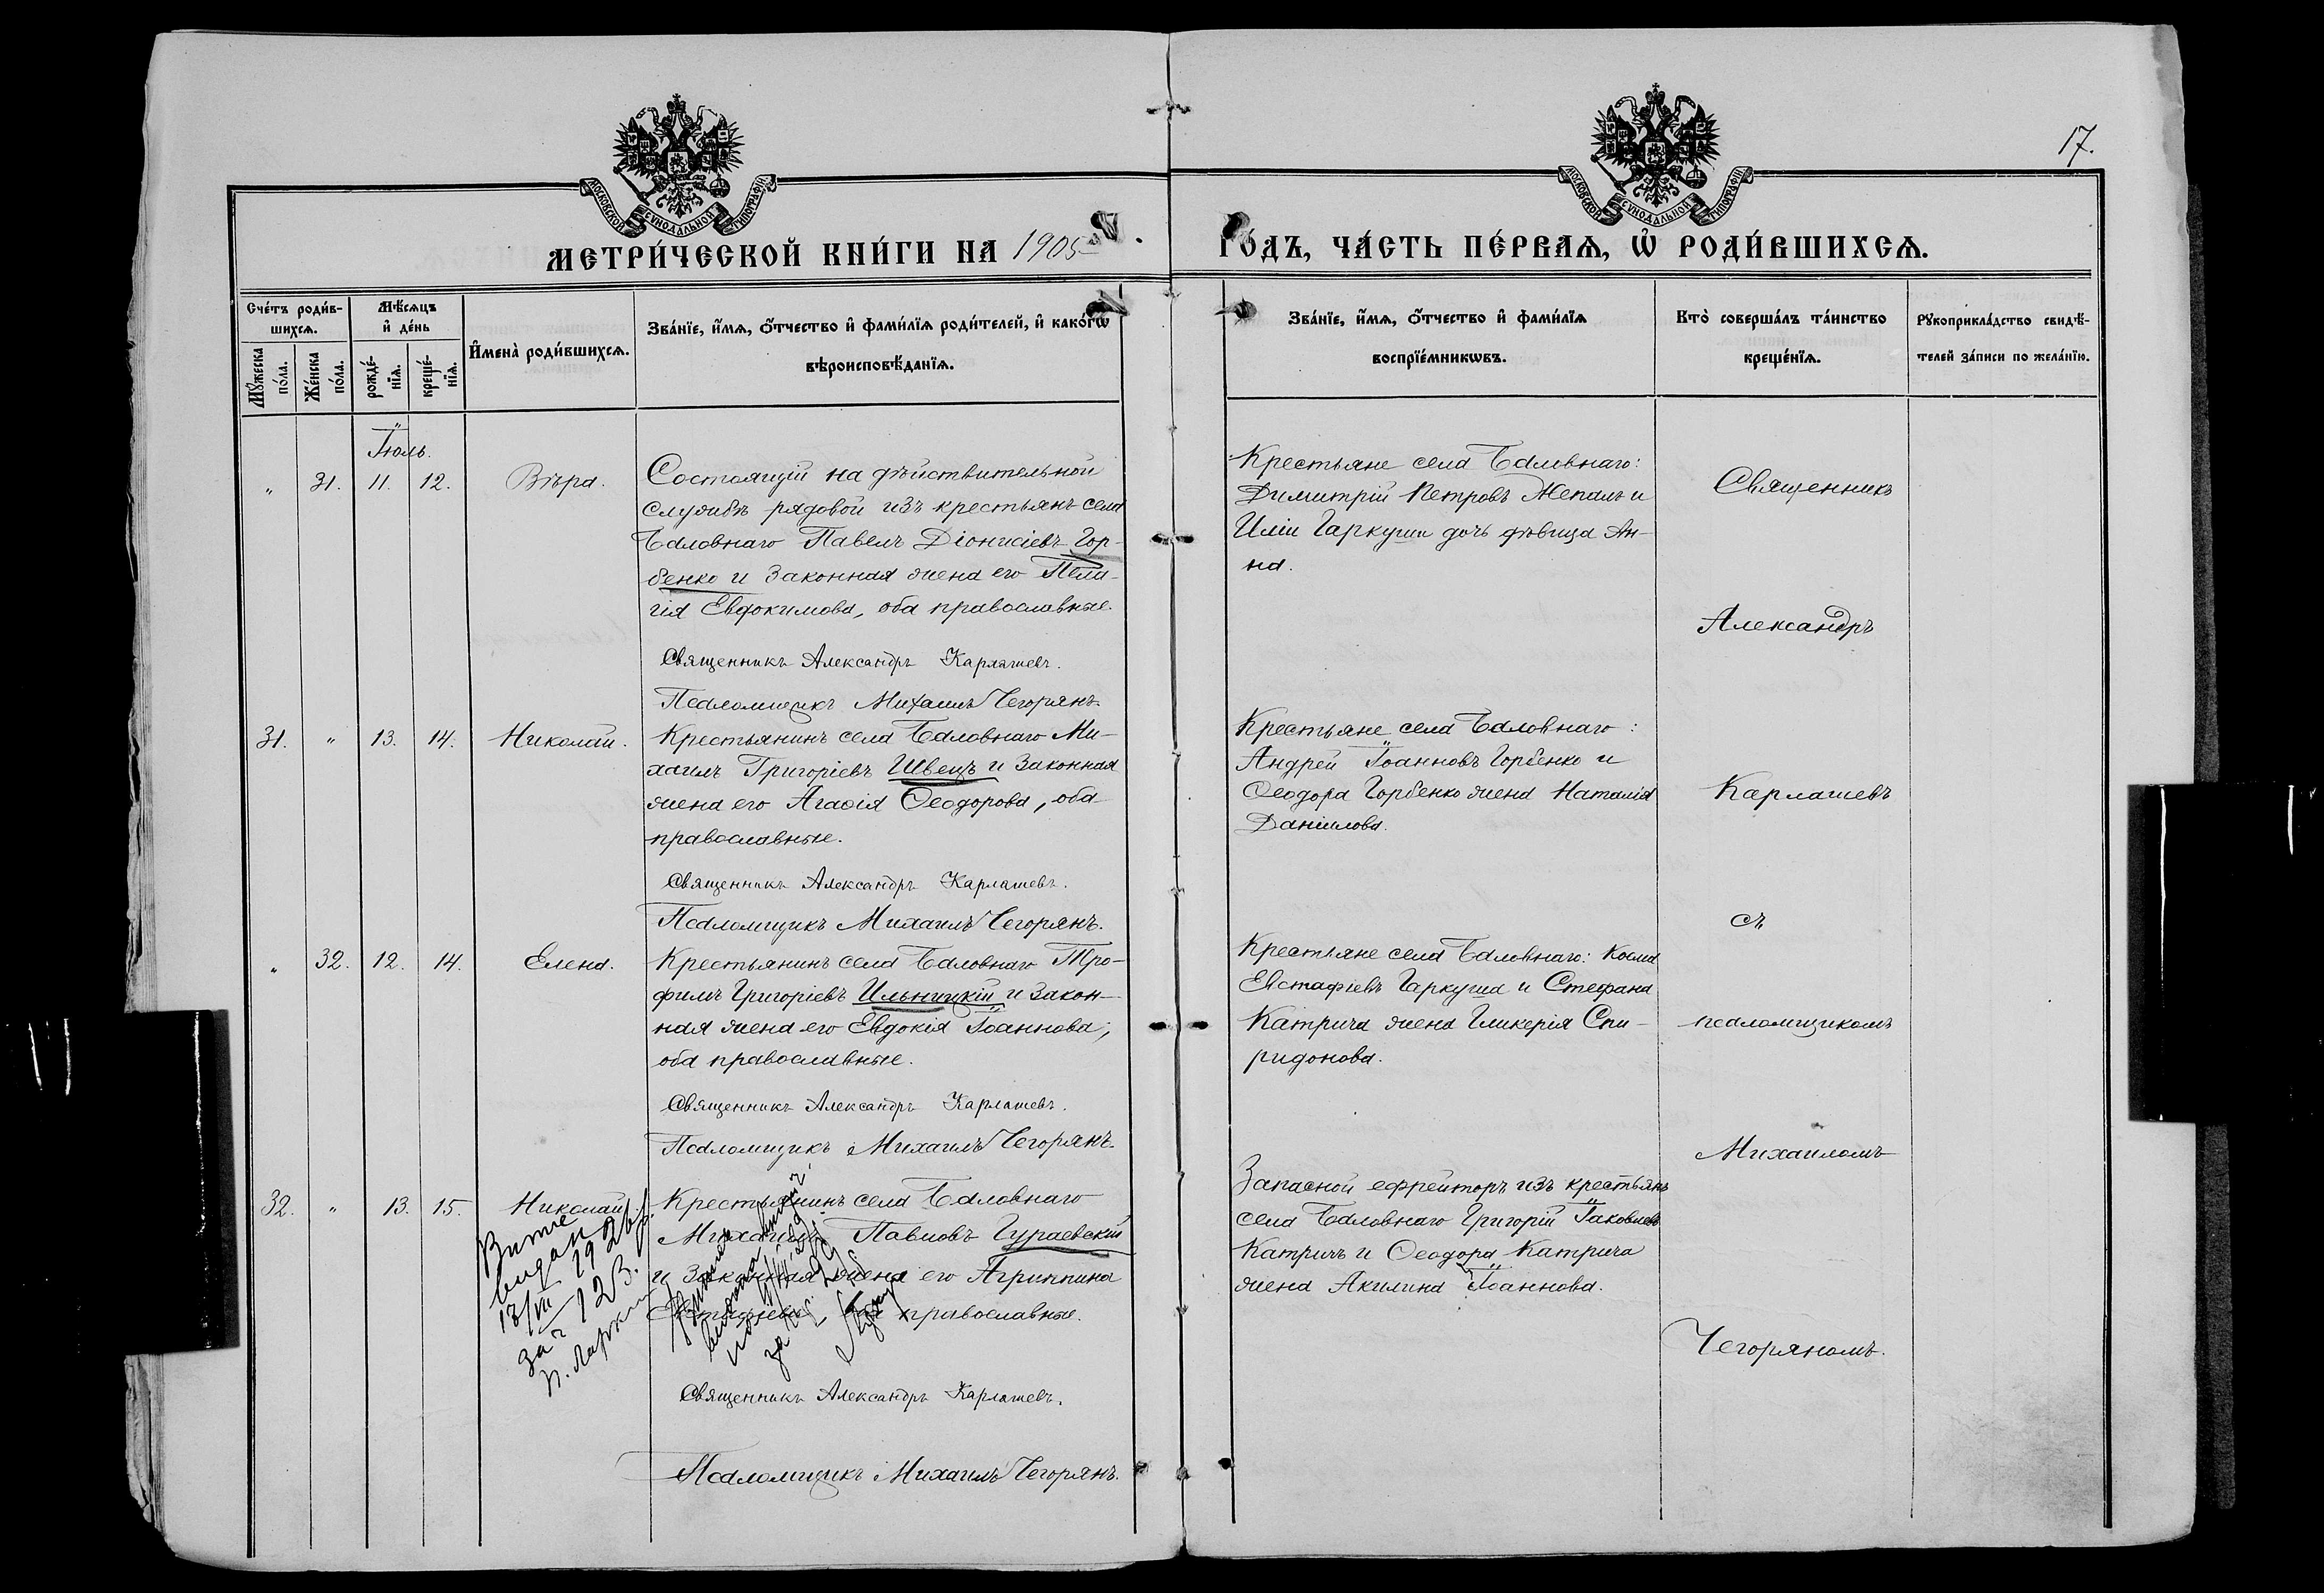 17.
МОСКОВСКОЙ СУНОДАЛЬНОЙ ТИПОГРАФІИ
МОСКОВСКОЙ СУНОДАЛЬНОЙ ТИПОГРАФІИ
МЕТРИ́ЧЕСКОЙ КНИ́ГИ НА 1905
ГО́ДЪ, ЧА́СТЬ ПЕ́РВАѦ, Ѡ҆ РОДИ́ВШИХСѦ.
Сче́тъ роди́в-
шихсѧ.
Мꙋ́жеска по́ла.
Же́нска по́ла.
Мѣ́сѧцъ
и҆ де́нь
рожде́-
нїѧ.
креще́-
нїѧ.
И҆мена̀ роди́вшихсѧ.
Зва́нїе, и҆́мѧ, ѻ҆́тчество и҆ фами́лїѧ роди́телей, и҆ како́гѡ
вѣроисповѣ́данїѧ.
Зва́нїе, и҆́мѧ, ѻ҆́тчество и҆ фами́лїѧ
воспрїе́мникѡвъ.
Кто̀ соверша́лъ та́инство
креще́нїѧ.
Рꙋкоприкла́дство свидѣ́-
телей за́писи по жела́нїю.
Іюль.
" 31. 11. 12. Вѣра.
Состоящій на дѣйствительной
службѣ рядовой изъ крестьянъ села
Баловнаго Павелъ Діонисіевъ Гор-
бенко и законная жена его Пела-
гія Евдокимова, оба православные.
Священникъ Александръ Карлашевъ.
Псаломщикъ Михаилъ Чегорянъ.
Крестьяне села Баловнаго:
Димитрій Петровъ Жепалъ и
Иліи Гаркуши дочь дѣвица Ан-
на.
31. " 13. 14. Николай.
Крестьянинъ села Баловнаго Ми-
хаилъ Григоріевъ Швецъ и законная
жена его Агаѳія Ѳеодорова, оба
православные.
Священникъ Александръ Карлашевъ.
Псаломщикъ Михаилъ Чегорянъ.
Крестьяне села Баловнаго:
Андрей Іоанновъ Горбенко и
Ѳеодора Горбенко жена Наталія
Даніилова.
" 32. 12. 14. Елена.
Крестьянинъ села Баловнаго Тро-
фимъ Григоріевъ Ильницкій и закон-
ная жена его Евдокія Іоаннова,
оба православные.
Священникъ Александръ Карлашевъ.
Псаломщикъ Михаилъ Чегорянъ.
Крестьяне села Баловнаго: Косма
Евстафіевъ Гаркуша и Стефана
Катрича жена Гликерія Спи-
ридонова.
32. " 13. 15. Николай
Крестьянинъ села Баловнаго
Михаилъ Павловъ Гураевскій
и законная жена его Агриппина
православные.
Священникъ Александръ Карлашевъ.
Псаломщикъ Михаилъ Чегорянъ.
Запасной ефрейторъ изъ крестьянъ
села Баловнаго Григорій Іаковлевъ
Катричъ и Ѳеодора Катрича
жена Акилина Іоаннова.
Витяг
видан
13/VIII 1926 р.
за № 123.
Священникъ
Александръ
Карлашевъ
съ
псаломщикомъ
Михаиломъ
Чегоряномъ.